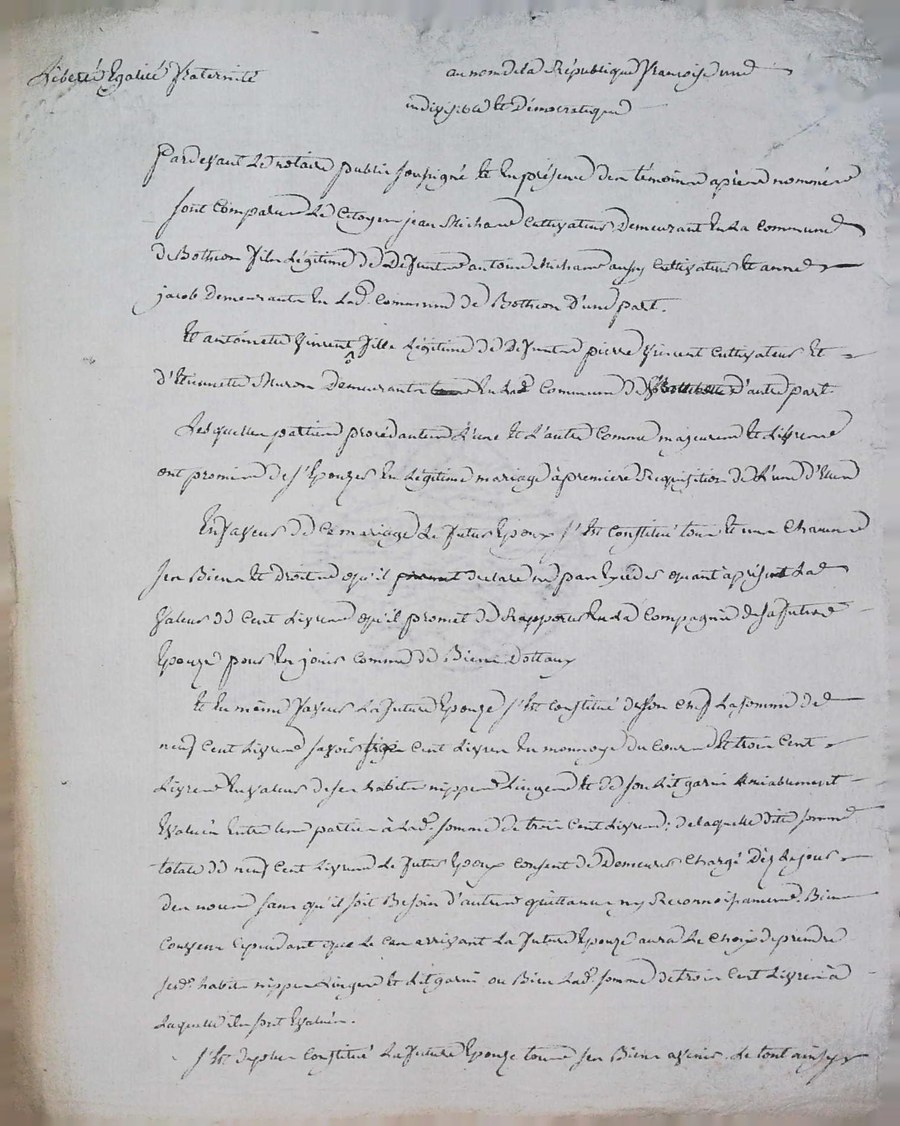 Liberté Egalité fraternité
au nom de la République françoise une
indivisible et Démocratique
Pardevant Le notaire public soussigné et en présence des témoins après nommés
sont comparus Le Citoyen jean Michand Cultivateur Demeurant en La Commune
de Bothéon fils Légitime de Défunt antoine Michand aussy Cultivateur et anne
jacob Demeurante en Lad. Commune de Bothéon D'une part.
Et antoinette Vincent fille Légitime de Défunt pierre Vincent Cultivateur et
d'Etiennette Muron Demeurante en Lad Commune de d'autre part
Lesquelles parties procédantes L'une et L'autre Comme majeures et Libres
ont promis de s'Epouzer en Légitime mariage à première Réquisition de L'une d'Elles
En faveur de Ce mariage Le futur Epoux s'est Constitué tous et uns Chacuns
ses Biens et droits qu'il declare ne pas Exéder quant à présent La
valeur de Cent Livres qu'il promet de Rapporter en La Compagnie de sa future
Epouze pour en jouir Comme de Biens Dottaux
Et en même faveur La future Epouze s'est Constitué de son Chef La somme de
neuf Cent Livres savoir six Cent Livres en monnoye du Cours et trois Cent
Livres en valeur de ses habits nippes Linges et de son Lit garni amiablement
Evalués entre les parties à Lad. somme de trois Cent Livres; de laquelle dite somme
totale de neuf Cent Livres Le futur Epoux consent de Demeurer Chargé Dès Le jour
des noces sans qu'il soit Besoin d'autres quittances ny Reconnoissances. Bien
Convenu Cependant que Le Cas arrivant La future Epouze aura Le Choix de prendre
sesd. habits nippes Linges et Lit garni ou Bien Lad. somme de trois Cent Livres à
Laquelle ils sont Evalués.
s'est de plus Constitué La future Epouze tous ses Biens avenir. Le tout ainsy